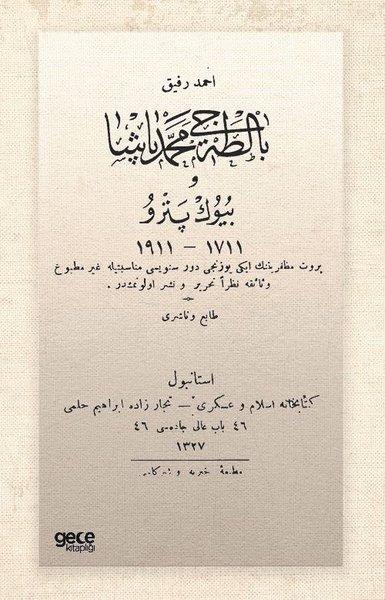 احمد رفيق
بالطه جی محمد پاشا
و
بيوك پترو
١٧١١ – ١٩١١
پروت مظفريتنك ايكی يوزنجی دور سنويسی مناسبتيله غير مطبوع
وثائقه نظراً تحرير و نشر اولونمشدر .
طابع و ناشری
استانبول
كتابخانه اسلام و عسكری – تجار زاده ابراهيم حلمی
٤٦ باب عالی جاده‌سی ٤٦
١٣٢٧
مطبعهٔ خيريه و شركاسی
gece
kitaplığı